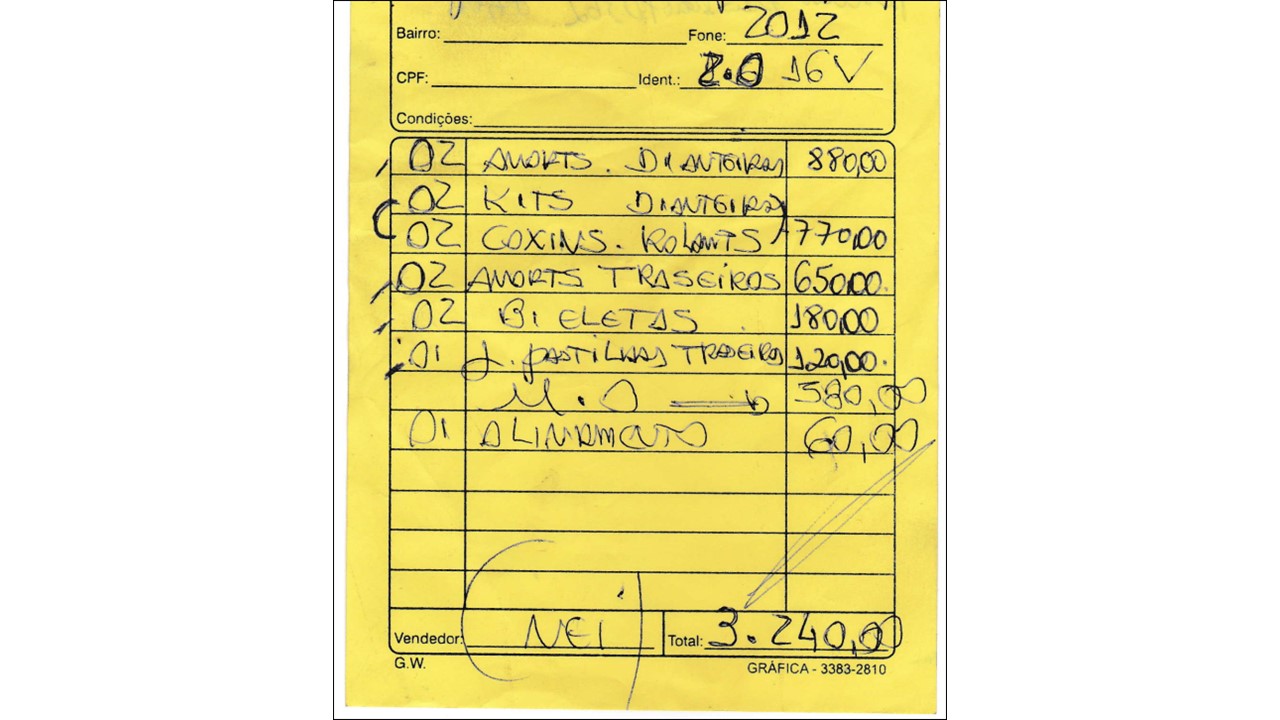 Bairro: Fone: 2012
CPF: Ident.: 2.0 16V
Condições:
02 AMORTS. DIANTEIROS 880,00
02 KITS DIANTEIRO
02 COXINS. ROLAMTS 770,00
02 AMORTS TRASEIROS 650,00
02 BIELETAS 180,00
01 J. PASTILHAS TRASEIRO 120,00
M.O → 580,00
01 ALINAMENTO 60,00
Vendedor: NEI Total: 3.240,00
G.W. GRÁFICA - 3383-2810